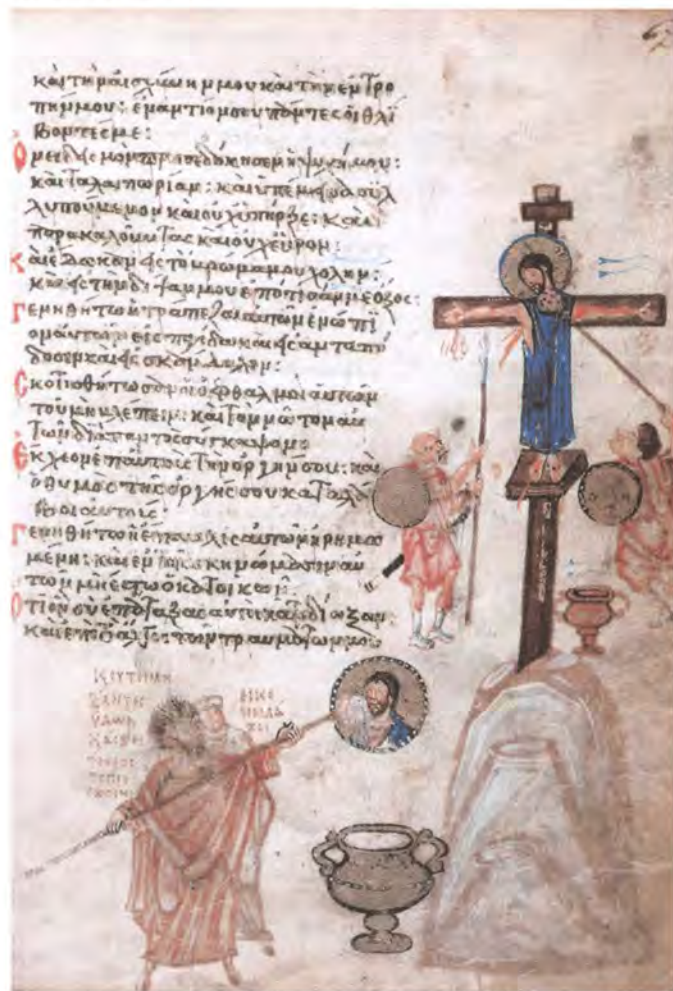 καὶ τὴν αἰσχύνην μου καὶ τὴν ἐντρο
πήν μου: ἐναντίον σου πάντες οἱ θλί
βοντές με:
Ὀνειδισμὸν προσεδόκησεν ἡ ψυχή μου:
καὶ ταλαιπωρίαν: καὶ ὑπέμεινα συλ
λυπούμενον καὶ οὐχ ὑπῆρξε: καὶ
παρακαλοῦντας καὶ οὐχ εὗρον:
Καὶ ἔδωκαν εἰς τὸ βρῶμα μου χολήν:
καὶ εἰς τὴν δίψαν μου ἐπότισάν με ὄξος:
Γενηθήτω ἡ τράπεζα αὐτῶν ἐνώπι
ον αὐτῶν εἰς παγίδα καὶ εἰς ἀνταπό
δοσιν καὶ εἰς σκάνδαλον:
Σκοτισθήτωσαν οἱ ὀφθαλμοὶ αὐτῶν
τοῦ μὴ βλέπειν: καὶ τὸν νῶτον αὐ
τῶν διὰ παντὸς σύγκαμψον
Ἔκχεον ἐπ' αὐτοὺς τὴν ὀργήν σου: καὶ
ὁ θυμὸς τῆς ὀργῆς σου καταλά
βοι αὐτούς:
Γενηθήτω ἡ ἔπαυλις αὐτῶν ἠρημω
μένη: καὶ ἐν τοῖς σκηνώμασιν αὐ
τῶν μὴ ἔστω ὁ κατοικῶν:
Ὅτι ὃν σὺ ἐπάταξας αὐτοὶ κατεδίωξαν:
καὶ ἐπὶ τὸ ἄλγος τῶν τραυμάτων μου